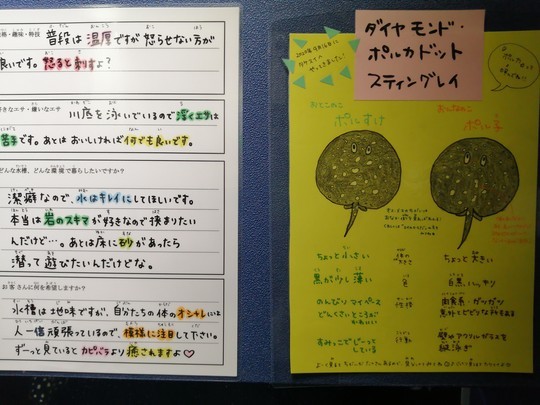 性格・趣味・特技
普段は温厚ですが怒らせない方が
良いです。怒ると刺すよ?
好きなエサ・嫌いなエサ
川底を泳いでいるので浮くエサは
苦手です。あとはおいしければ何でも良いです。
どんな水槽、どんな環境で暮らしたいですか?
潔癖なので、水はキレイにしてほしいです。
本当は岩のスキマが好きなので挟まりたい
んだけど…。あとは床に砂があったら
潜って遊びたいんだけどな。
お客さんに何を希望しますか?
水槽は地味ですが、自分たちの体のオシャレには
人一倍頑張っているので、模様に注目して下さい。
ずーっと見ているとカピバラより癒されますよ♡
ダイヤモンド・
ポルカドット
スティングレイ
おとこのこ
ポルすけ
おんなのこ
ポル子
ちょっと小さい
体の大きさ
ちょっと大きい
黒が少し薄い
色
白黒ハッキリ
のんびりマイペース
どんくさいところが
かわいい
性格
肉食系 ガツガツ
意外とビビりな所もある
すみっこでじーっと
している
行動
壁やアクリルガラスを
縦泳ぎ